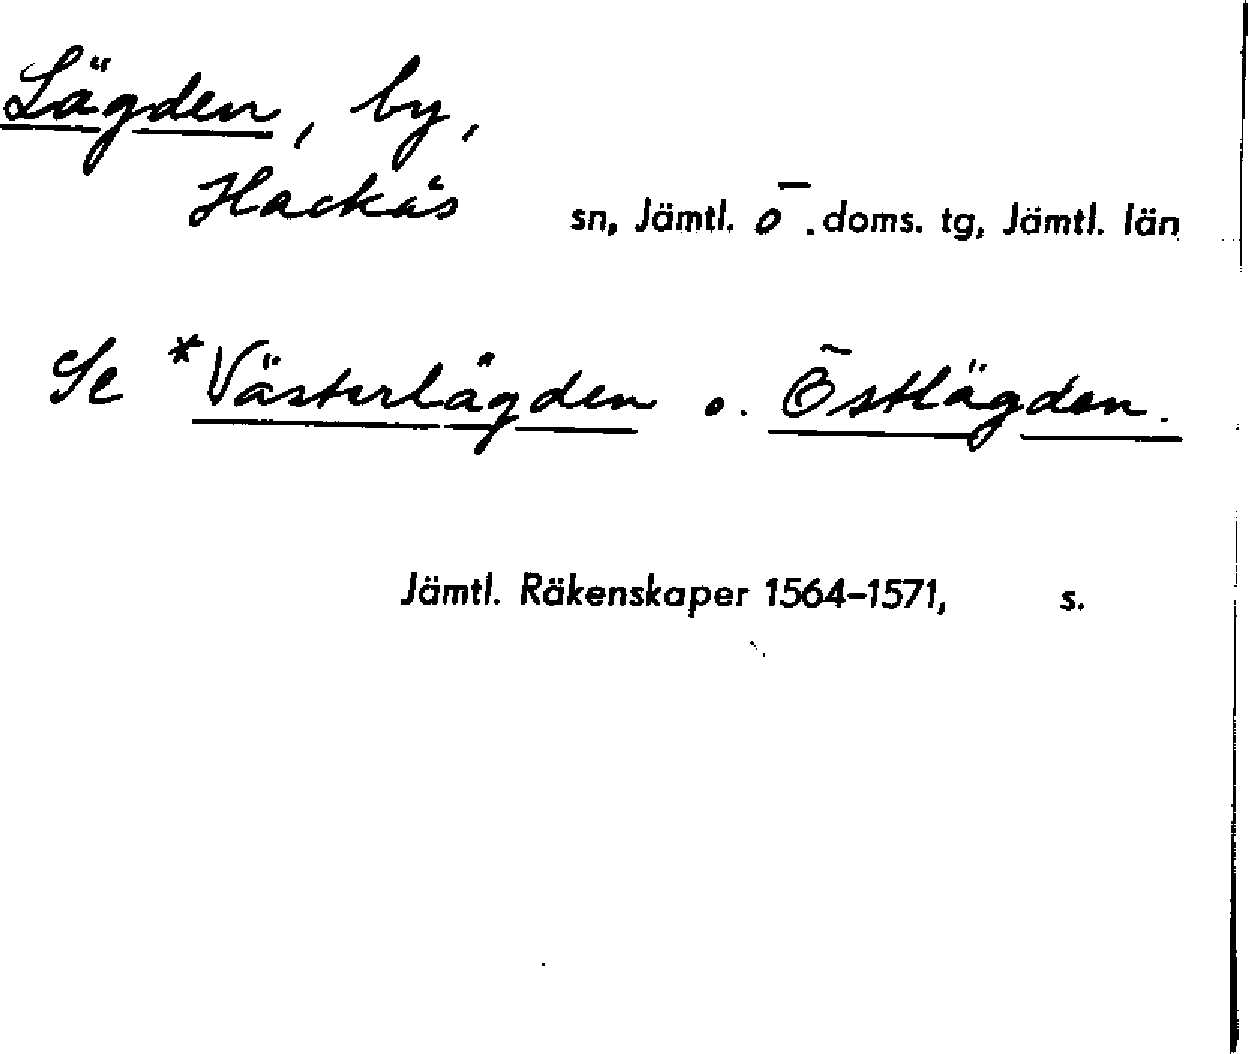 Lägden, by,
Hackås sn, Jämtl. ö. doms. tg, Jämtl. län
Se *Västerlägden o. Östlägden.
Jämtl. Räkenskaper 1564–1571, s.